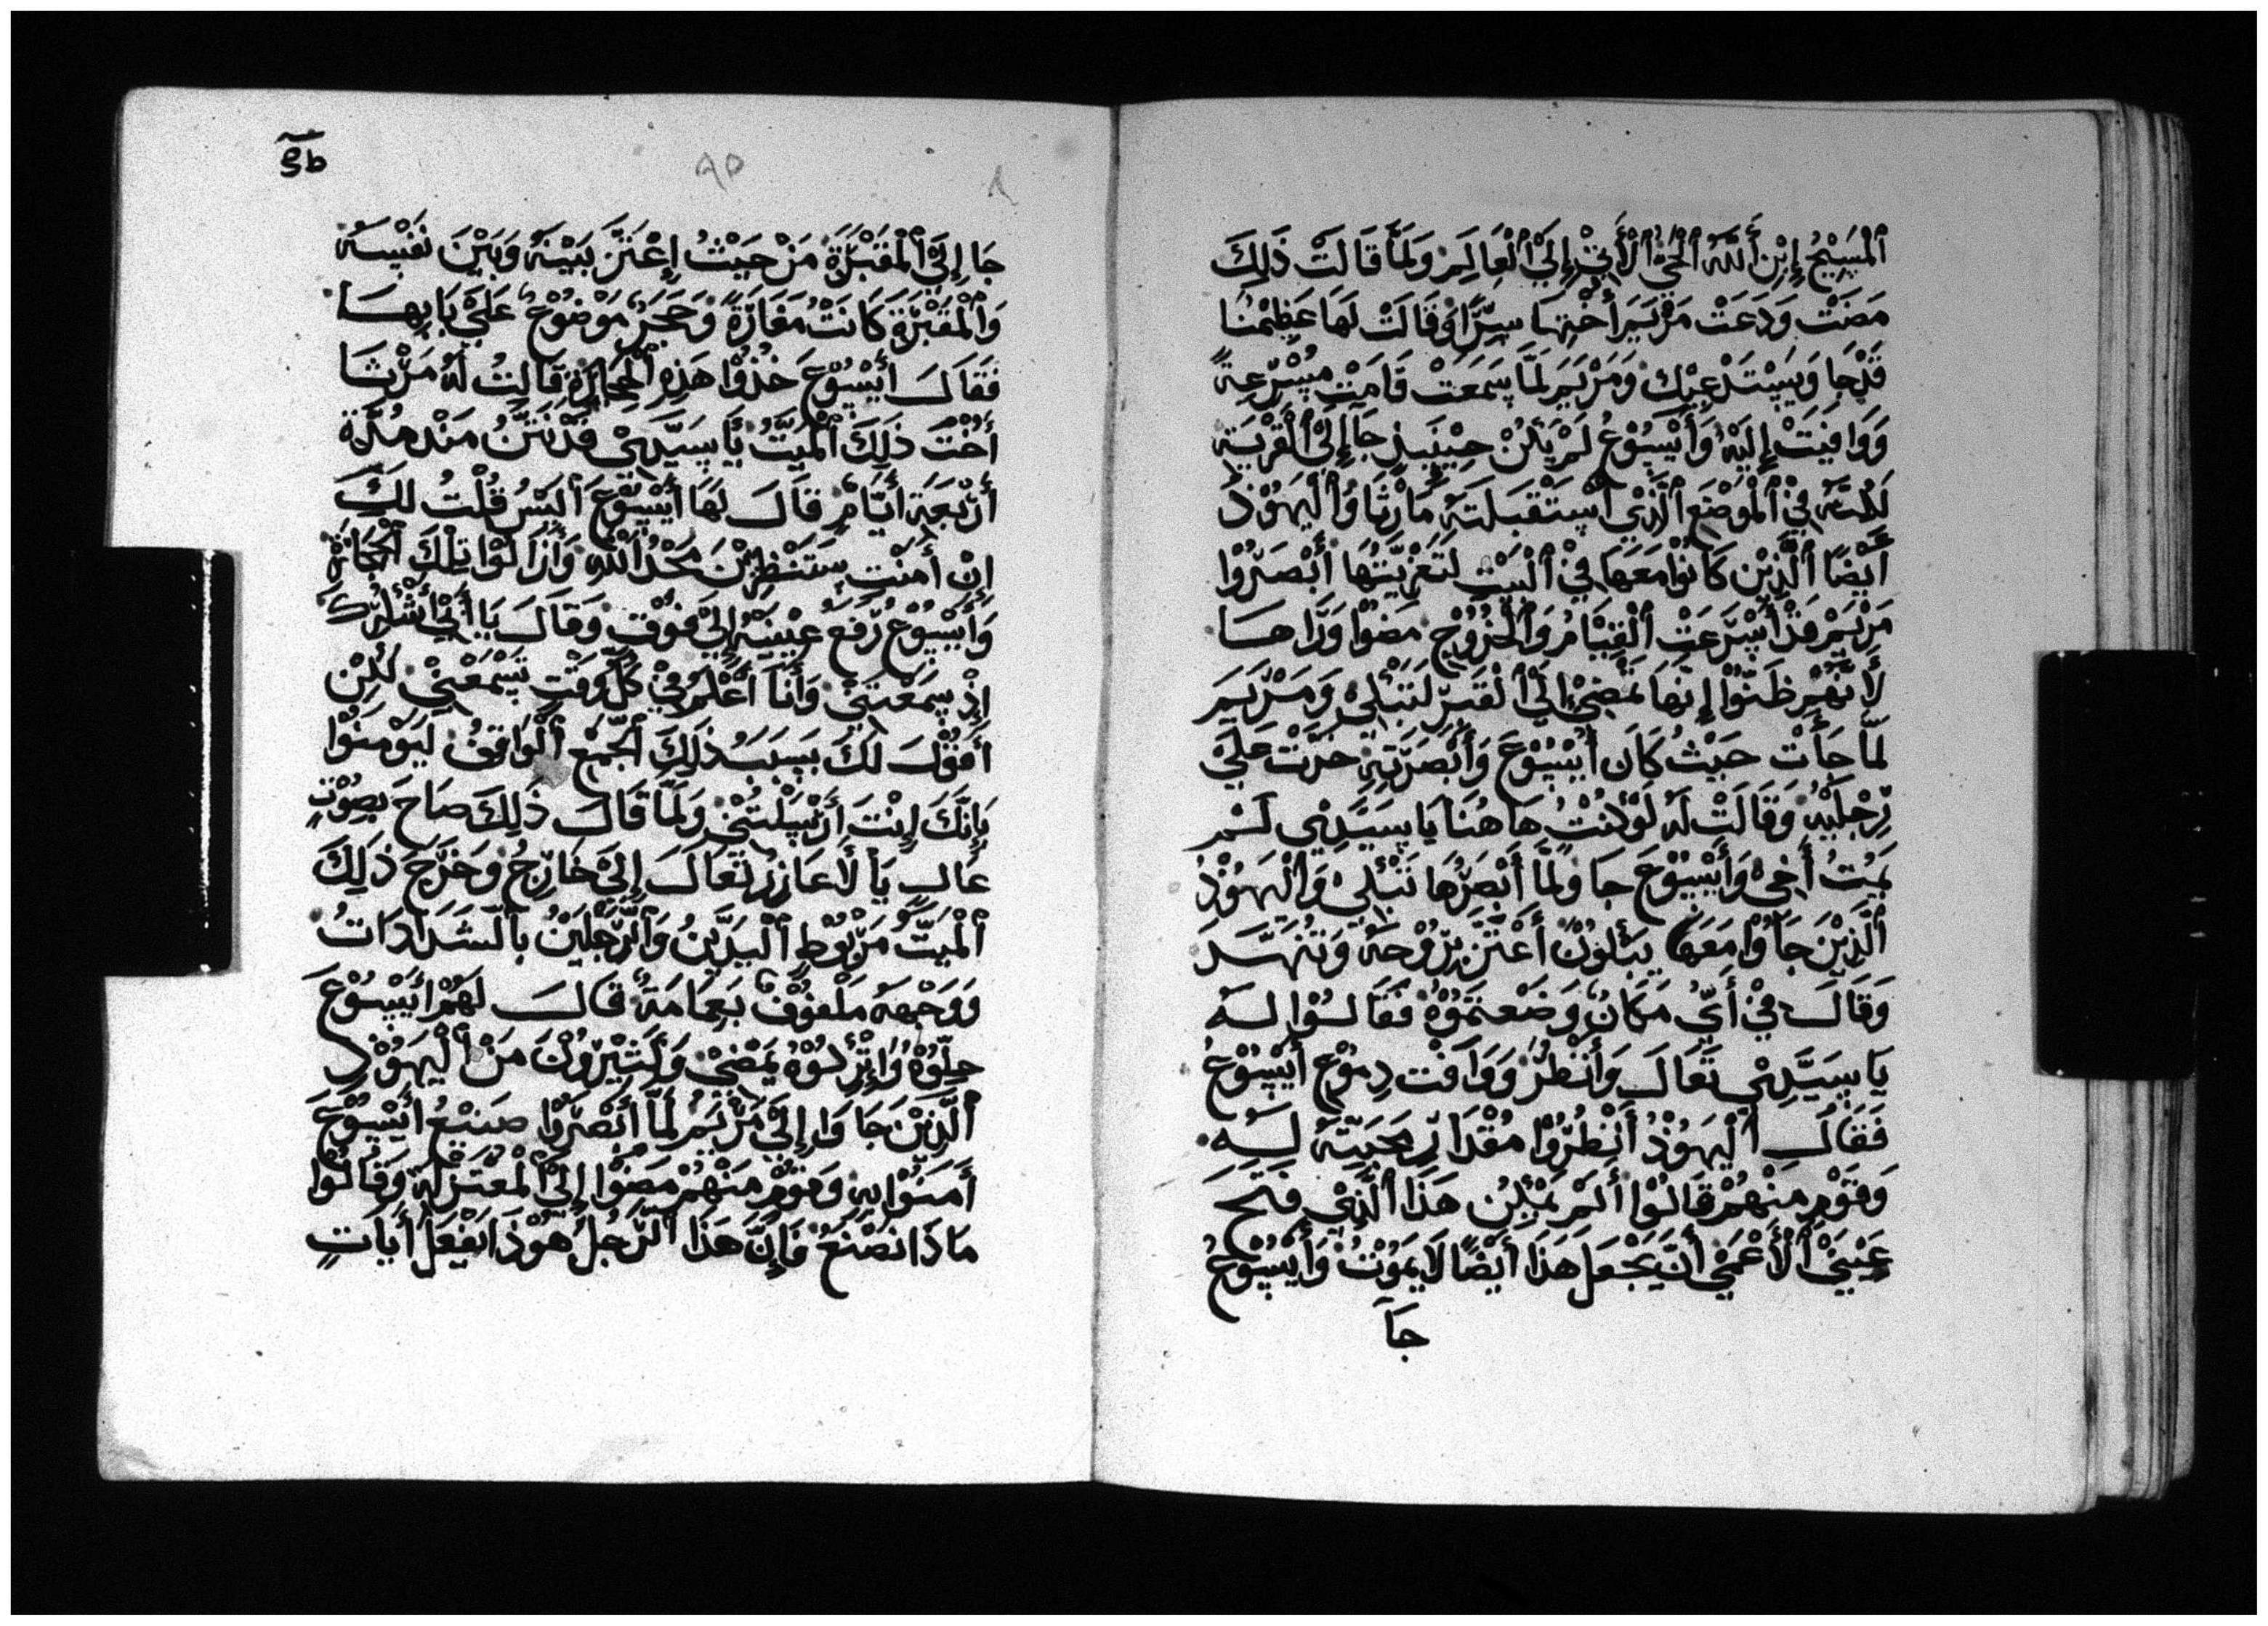 ٱلْمَسِيْحُ إِبْنِ ٱللَّهُ ٱلْحَيْ ٱلْأَتِيْ إِلَيْ ٱلْعَالَمِ وَلَمَّا قَالَتْ ذَلِكَ
مَضَتْ وَدَعَتْ مَرْيَمَ أُخْتِهَا سِرًّا وَقَالَتْ لَهَا عَظِيْمُنَا
قَدْ جَا وَيَسْتَدْعِيْكِ وَمَرْيَمَ لَمَّا سَمَعَتْ قَامَتْ مُسْرِعَةً
وَوَافِيَتْ إِلَيْهِ وَأَيْسُوْعُ لَمْ يَكُنْ حِيْنَيذٍ جَا إِلَيْ ٱلْقَرْيَة
لَكِنَّهُ فِيْ ٱلْمَوْضَعِ ٱلَّذِيْ ٱسْتَقْبَلَتَهُ مَارْثَا وُٱلْيَهُوْدُ
أَيْضًا ٱلَّذِيْنَ كَانُوْا مَعَهَا فِيْ ٱلْبَيْتِ لَتَعْزِيَتُهَا أَبْصَرُوْا
مَرْيَمْ قَدْ أَسْرَعَتْ ٱلْقِيَامُ وَٱلْخُرُوْجِ مَضَوْا وَرَاهَا
لَأَنَّهُمْ ظَنَّوْا إِنَّهَا تَمْضِيْ إِلَيْ ٱلْقَبْرِ لَتَبْكِيْ وَمَرْيَمَ
لَمَّا جَأَتْ حَيْثُ كَانَ أَيْسُوْعَ وَأَبْصَرَتِهِ خَرَّتْ عَلَيْ
رِجْلَيْهِ وَقَالَتْ لَهُ لَوْ كُنْتُ هَاهُنَا يَا سَيِّدِيْ لَمْ
يَمُتُ أَخِيْ وَأَيْسُوْعَ جَا وَلَمَّا أَبْصَرَهَا تَبْكِيْ وَٱلْيَهُوْدُ
ٱلَّذِيْنَ جَاوُا مَعَهَا يَبْكُوْنَ أَعْتَزَّ بِرُوْحَهُ وَتَنَهَّدَ
وَقَالَ فِيْ أَيِّ مَكَانٍ وَضَعْتَمُوْهُ فَقَالُوْا لَهُ
يَا سَيِّدِيْ تَعَالَ وَأَنْظُرْ وَوَافَتْ دِمُوْعِ أَيْسُوْعُ
فَقَالَ ٱلْيَهُوْدُ أَنْظُرُوْا مُقْدَارِ مَحَبَّتَهُ لَهُ
وَقَوْمٍ مِنْهُمْ قَالُوْا أَلَمْ يَمْكِنُ هَذَا ٱلَّذِيْ فَتَحَ
عَيْنَيْ ٱلْأَعْمَيْ أَنْ يَجْعَلَ هَذَا أَيْضًا لَا يَمُوْتُ وَأَيْسُوْعُ
جَآ
٩٥
جَا إِلَيْ ٱلْمَقْبَرَةِ مَنْ حَيْثُ إِعْتَزَّ بَيْنَهُ وَبَيْنَ نَفْسَهُ
وَٱلْمَقْبَرَةِ كَانَتْ مَغَارَةً وَحَجَرٌ مَوْضُوْعٌ عَلَيْ بَابِهَا
فَقَالَ أَيْسُوْعَ خُذُوْا هَذِهِ ٱلْحِجَارَةِ قَالَتْ لَهُ مَرْثَا
أُخْتُ ذَلِكَ ٱلْمَيِّتُ يَا سَيِّدِيْ قَدْ نَتَنُ مَنْذ مُدَّة
أَرْبَعَةِ أَيَّامٍ قَالَ لَهَا أَيْسُوْعَ أَلَيْسُ قُلْتُ لَكَ
إِنْ أَمَنْتِ سَتَنْظِرِيْنَ مَجْدُ ٱللَّهِ وَأَزَالُوْا تِلْكَ ٱلْحِجَارَةِ
وَأَيْسُوْعُ رَفَعَ عَيْنَيْهِ إِلَيْ فَوْقِ وَقَالَ يَا أَبِيْ أَشْكُرُكَ
إِذْ سَمَعْتَنِيْ وَأَنَا أَعْلَمُ فِيْ كُلِّ وَقْتٍ تَسْمَعْنِيْ لَكِنْ
أَقُوْلَ لَكَ بَسَبَبُ ذَلِكَ ٱلْجَمْعِ ٱلْوَاقِفُ لِيَوْمِنَوْا
بَإِنَّكَ إِنْتَ أَرْسَلْتَنِيْ وَلَمَّا قَالَ ذَلِكَ صَاحَ بِصَوْتٍ
عَالِ يَا لَاعَازِرُ تَعَالَ إِلَيْ خَارِجُ وَخَرَجَ ذَلِكَ
ٱلْمَيِّتُ مَرْبُوْطٍ ٱلْيَدَّيْنِ وَٱلرِّجْلَيْنُ بِٱلشَدَادَاتُ
وَوَجْهَهُ مَلْفُوْفٌ بَعِمَامَةٍ قَالَ لَهُمْ أَيْسُوْعَ
حِلُّوْهُ وَإِتْرُكُوْهُ يَمْضِيْ وَكَثَيْرُوْنَ مَنْ ٱلْيَهُوْدِ
ٱلَّذِيْنَ جَاوَا إِلَيْ مَرْيَمُ لَمَّا أَبْصَرُوْا صَنِيْعُ أَيْسُوْعَ
أَمَنُوْا بِهِ وَقَوْمٌ مِنْهُمْ مَضَوْا إِلَيْ ٱلْمُعْتَزِلَهِ وَقَالُوْا
مَاذَا نَصْنَعُ فَإِنَّ هَذَا ٱلرَّجُلُ هُوْذَا يَفْعَلُ أَيَاتٍ